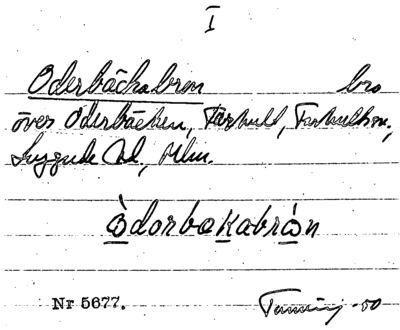 I
Oderbäckabron bro
över Oderbäcken, Farhult, Farhults sn,
Luggude hd, Mlm.
òdorbakabrón
Nr 5677. -50